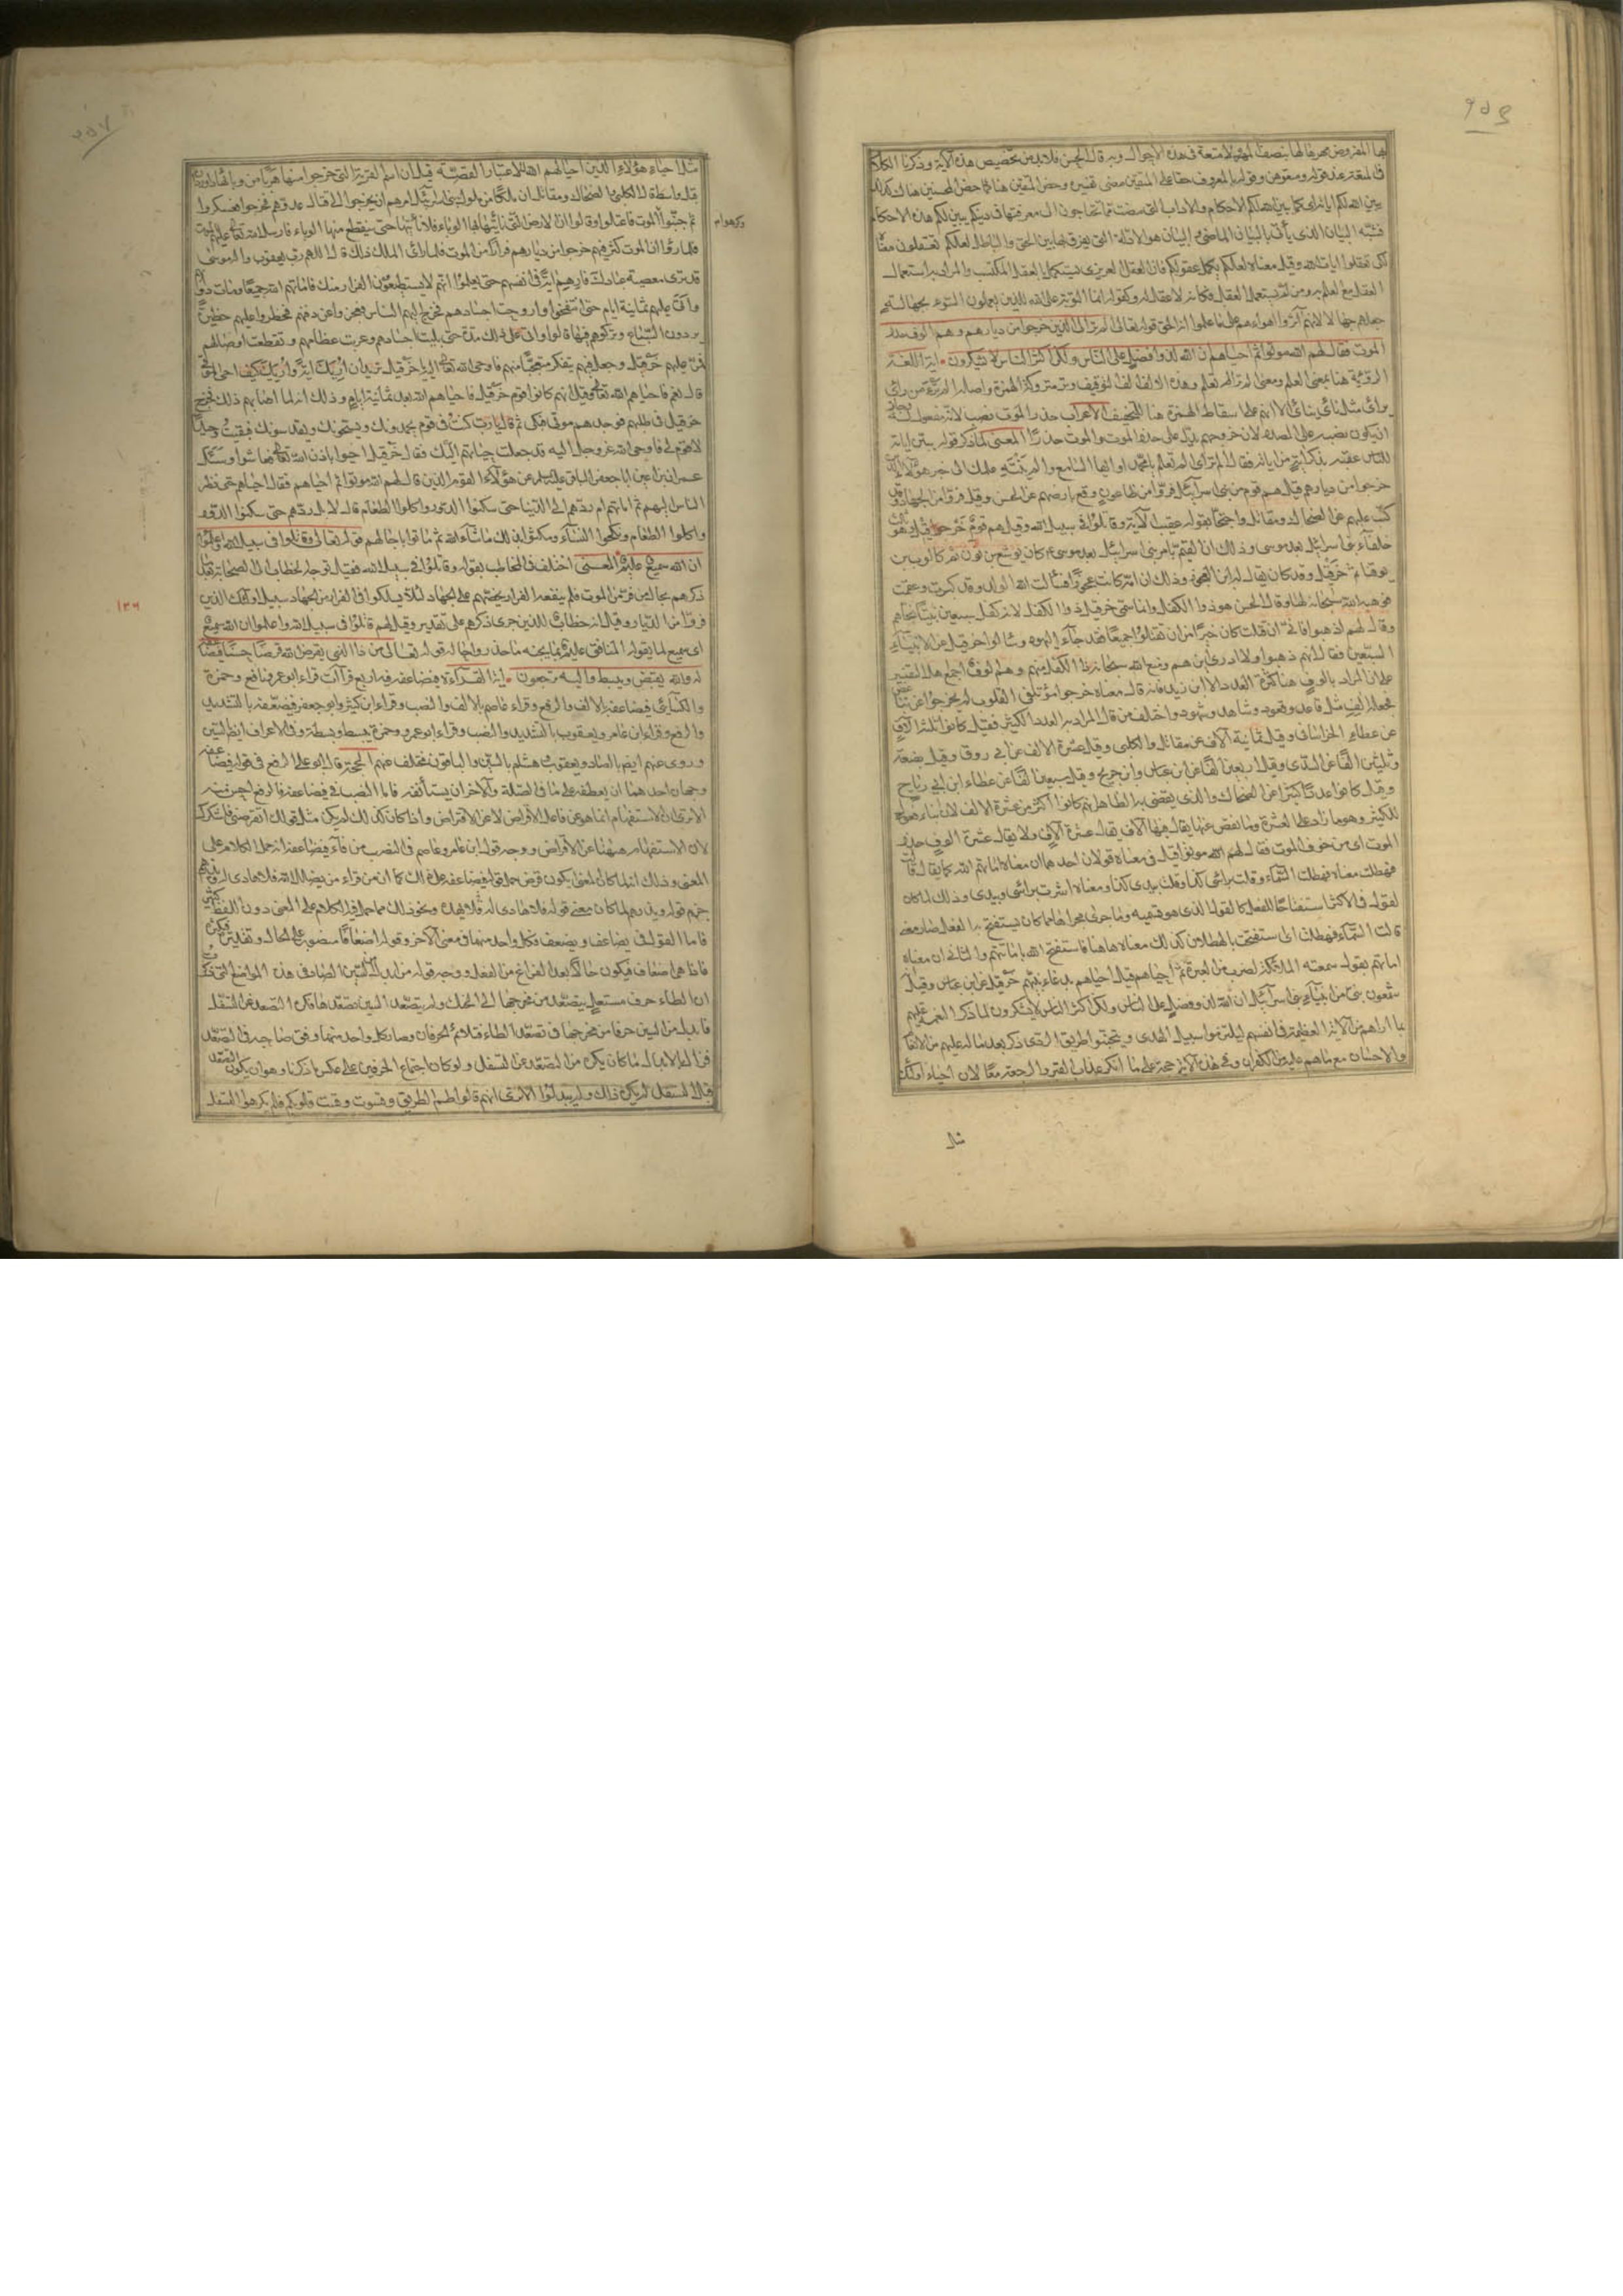 بها المفروض مهرها لها بنصف المهر لا متعة في هذه الاحوال وبه قال الحسن فلا بد من تخصيص هذه الآية وذكرنا الكلام
في المتعة عند قوله ومتعوهن وقوله بالمعروف حقا على المتقين مضى تفسيره وخص المتقين هنا كما خص المحسنين هناك كذلك
يبين الله لكم آياته اي كما بين الله لكم الاحكام والآداب التي مضت مما تحتاجون الى معرفتها في دينكم يبين لكم هذه الاحكام
فشبه البيان الذي يأتي بالبيان الماضي والبيان هو الادلة التي يفرق بها بين الحق والباطل لعلكم تعقلون معناه
لكي تعقلوا آيات الله وقيل معناه لعلكم يكمل عقولكم فان العقل الغريزي يستكمل بالعقل المكتسب والمراد به استعمال
العقل مع العلم به ومن لم يستعمل العقل فكأنه لا عقل له وكقوله انما التوبة على الله للذين يعملون السوء بجهالة
جعلهم جهالا لانهم آثروا اهواءهم على ما علموا انه الحق قوله تعالى الم تر الى الذين خرجوا من ديارهم وهم الوف حذر
الموت فقال لهم الله موتوا ثم احياهم ان الله لذو فضل على الناس ولكن اكثر الناس لا يشكرون اية اللغة
الرؤية هنا بمعنى العلم ومعنى الم تر الم تعلم وهذه الالف الف التوقيف وتر متروكة الهمزة واصله الم ترء من رأى
يرأى مثل نأى ينأى الا انهم على اسقاط الهمزة هنا للتخفيف الاعراب حذر الموت نصب لانه مفعول له وجاز
ان يكون نصبه على المصدر لان خروجهم يدل على حذر الموت والموت حذرا المعنى لما ذكر قوله يبين آياته
للناس عقبه بذكر آية من آياته فقال الم تر اي الم تعلم يا محمد او ايها السامع والم ينته علمك الى خبر هؤلاء الذين
خرجوا من ديارهم قيل هم قوم من بني اسرائيل فروا من طاعون وقع بارضهم عن الحسن وقيل فروا من الجهاد وقد
كتب عليهم عن الضحاك ومقاتل واحتجا بقوله عقيب الآية وقاتلوا في سبيل الله وقيل هم قوم حزقيل وهو ثالث
خلفاء بني اسرائيل بعد موسى وذلك ان القيم بامر بني اسرائيل بعد موسى كان يوشع بن نون ثم كالب بن
يوقنا ثم حزقيل وقد كان يقال له ابن العجوز وذلك ان امه كانت عجوزا فسألت الله الولد وقد كبرت وعقمت
فوهبه الله سبحانه لها وقال الحسن هو ذو الكفل وانما سمي حزقيل ذو الكفل لانه كفل سبعين نبيا نجاهم
وقال لهم اذهبوا فاني ان قتلت كان خيرا من ان تقتلوا جميعا فلما جاء اليهود وسألوا حزقيل عن الانبياء
السبعين فقال انهم ذهبوا ولا ادري اين هم ومنع الله سبحانه ذا الكفل منهم وهم الوف اجمع اهل التفسير
على ان المراد بالوف هنا كثرة العدد الا ابن زيد فانه قال معناه خرجوا مؤتلفي القلوب لم يخرجوا عن تباغض
فجعله جمع الف مثل قاعد وقعود وشاهد وشهود واختلف من قال المراد به العدد الكثير فقيل كانوا ثلثة آلاف
عن عطاء الخراساني وقيل ثمانية آلاف عن مقاتل والكلبي وقيل عشرة آلاف عن ابي روق وقيل بضعة
وثلثين الفا عن السدي وقيل اربعين الفا عن ابن عباس وابن جريج وقيل سبعين الفا عن عطاء ابن ابي رباح
وقيل كانوا عددا كثيرا عن الضحاك والذي يقضي به الظاهر انهم كانوا اكثر من عشرة آلاف لان بناء فعول
للكثير وهو ما زاد على العشرة وما نقص عنها يقال فيها آلاف يقال عشرة آلاف ولا يقال عشرة الوف حذر
الموت اي من خوف الموت فقال لهم الله موتوا قيل في معناه قولان احدهما ان معناه اماتهم الله كما يقال قالت
السماء فهطلت معناه فهطلت السماء وقلت برأسي كذا وقلت بيدي كذا ومعناه اشرت برأسي وبيدي وذلك لما كان
القول في الاكثر استفتاحا للفعل كالقول الذي هو تسمية وما جرى مجراها مما كان يستفتح به الفعل صار معنى
قالت السماء فهطلت اي استفتحت بالهطلان كذلك معناه هاهنا فاستفتح الله باماتتهم والثاني ان معناه
اماتهم بقول سمعته الملائكة لضرب من العبرة ثم احياهم قيل احياهم بدعاء نبيهم حزقيل عن ابن عباس وقيل
شمعون نبي من انبياء بني اسرائيل ان الله لذو فضل على الناس ولكن اكثر الناس لا يشكرون لما ذكر النعمة عليهم
بما اراهم من الآية العظيمة في انفسهم ليلتزموا سبيل الهدى ويتجنبوا طريق الردى ذكر بعده ما له عليهم من الانعام
والاحسان مع ما هم عليه من الكفران وفي هذه الآية حجة على من انكر عذاب القبر والرجعة معا لان احياء اولئك
مثل
مثل احياء هؤلاء الذين احياهم الله للاعتبار القصة قيل ان اسم القرية التي خرجوا منها هربا من وبائها داوردان
قبل واسط قال الكلبي والضحاك ومقاتل ان ملكا من ملوك بني اسرائيل امرهم ان يخرجوا الى قتال عدوهم فخرجوا فعسكروا
ثم جبنوا وكرهوا الموت فاعتلوا وقالوا ان الارض التي نأتيها بها الوباء فلا نأتيها حتى ينقطع منها الوباء فارسل الله تعالى عليهم الموت
فلما رأوا ان الموت كثر فيهم خرجوا من ديارهم فرارا من الموت فلما رأى الملك ذلك قال اللهم رب يعقوب واله موسى
قد ترى معصية عبادك فارهم آية في انفسهم حتى يعلموا انهم لا يستطيعون الفرار منك فاماتهم الله جميعا ومات دوابهم
واتى عليهم ثمانية ايام حتى انتفخوا واروحت اجسادهم فخرج اليهم الناس فعجزوا عن دفنهم فحظروا عليهم حظيرة
دون السباع وتركوهم فيها قالوا واتى على ذلك مدة حتى بليت اجسادهم وعريت عظامهم وتقطعت اوصالهم
فمر عليهم حزقيل وجعل فيهم يفكر متعجبا منهم فاوحى الله تعالى اليه يا حزقيل تريد ان اريك آية واريك كيف احيي الموتى
قال نعم فاحياهم الله تعالى وقيل انهم كانوا قوم حزقيل فاحياهم الله بعد ثمانية ايام وذلك انه لما اصابهم ذلك خرج
حزقيل في طلبهم فوجدهم موتى فبكى ثم قال يا رب كنت في قوم يحمدونك ويسبحونك ويقدسونك فبقيت وحيدا
لا قوم لي فاوحى الله عز وجل اليه قد جعلت حياتهم اليك فقال حزقيل احيوا باذن الله تعالى فعاشوا وسأل
حمران بن اعين ابا جعفر الباقر عليه السلام عن هؤلاء القوم الذين قال لهم الله موتوا ثم احياهم فقال احياهم حتى نظر
الناس اليهم ثم اماتهم ام ردهم الى الدنيا حتى سكنوا الدور واكلوا الطعام قال لا بل ردهم حتى سكنوا الدور
واكلوا الطعام ونكحوا النساء ومكثوا بذلك ما شاء الله ثم ماتوا بآجالهم قوله تعالى وقاتلوا في سبيل الله واعلموا
ان الله سميع عليم المعنى اختلف في المخاطب بقوله وقاتلوا في سبيل الله فقيل توجه الخطاب الى الصحابة بعد ما
ذكرهم بحال من فر من الموت فلم ينفعه الفرار يحضهم على الجهاد لئلا يسلكوا في الفرار من الجهاد سبيل اولئك الذين
فروا من الديار وقيل انه خطاب للذين جرى ذكرهم على تقدير وقيل لهم قاتلوا في سبيل الله واعلموا ان الله سميع
اي سميع لما يقول المنافق عليم بما يجنه فاحذروا حاله قوله تعالى من ذا الذي يقرض الله قرضا حسنا فيضاعفه
له والله يقبض ويبسط واليه ترجعون اية القراءة فيضاعفه فيه اربع قراآت قراء ابو عمرو ونافع وحمزة
والكسائي فيضاعفه بالالف والرفع وقراء عاصم بالالف والنصب وقراء ابن كثير وابو جعفر فيضعفه بالتشديد
والرفع وقراء ابن عامر ويعقوب بالتشديد والنصب وقراء ابو عمرو وحمزة يبسط وبسطة وفي الاعراف ايضا بالسين
وروي عنهم ايضا بالصاد ويعقوب وهشام بالسين والباقون مختلف عنهم الحجة قال ابو علي الرفع في قوله فيضاعفه
وجهان احدهما ان يعطفه على ما في الصلة والآخر ان يستأنفه فاما النصب في فيضاعفه فالرفع احسن منه
الا ترى ان الاستفهام انما هو عن فاعل الاقراض لا عن الاقراض واذا كان كذلك لم يكن مثل قولك اتقرضني فاشكرك
لان الاستفهام هيهنا عن الاقراض ووجه قول ابن عامر وعاصم في النصب من فاء فيضاعفه انه حمل الكلام على
المعنى وذلك انه لما كان المعنى ايكون قرض حمل قوله فيضاعفه على ذلك كما ان من قراء من يضلل الله فلا هادي له ويذرهم
جزم قوله ويذرهم لما كان معنى قوله فلا هادي له فلا يهده ونحو ذلك مما حمل فيه الكلام على المعنى دون اللفظ كثير
فاما القول في يضاعف ويضعف فكل واحد منهما في معنى الآخر وقوله اضعافا منصوب على الحال وتقديره فيكثره
فاذا هي اضعاف فيكون حالا بعد الفراغ من الفعل ووجه قول من ابدل من السين الصاد في هذه المواضع التي ذكرت
ان الطاء حرف مستعل يتصعد من مخرجها الى الحنك ولم يتصعد السين تصعدها فكره التصعد عن التسفل
فابدل من السين حرفا من مخرجها في تصعد الطاء فتلائم الحرفان وصار كل واحد منهما وفق صاحبه في التصعد
فزال بالابدال ما كان يكره من التصعد عن التسفل ولو كان اجتماع الحرفين على عكس ما ذكرنا وهو ان يكون التصعد
قبل التسفل لم يكره ذلك ولم يبدلوا الا ترى انهم قالوا طسم الطريق وقسوت وقست قلوبكم فلم يكرهوا التسفل
وكرهوا
١٣٦